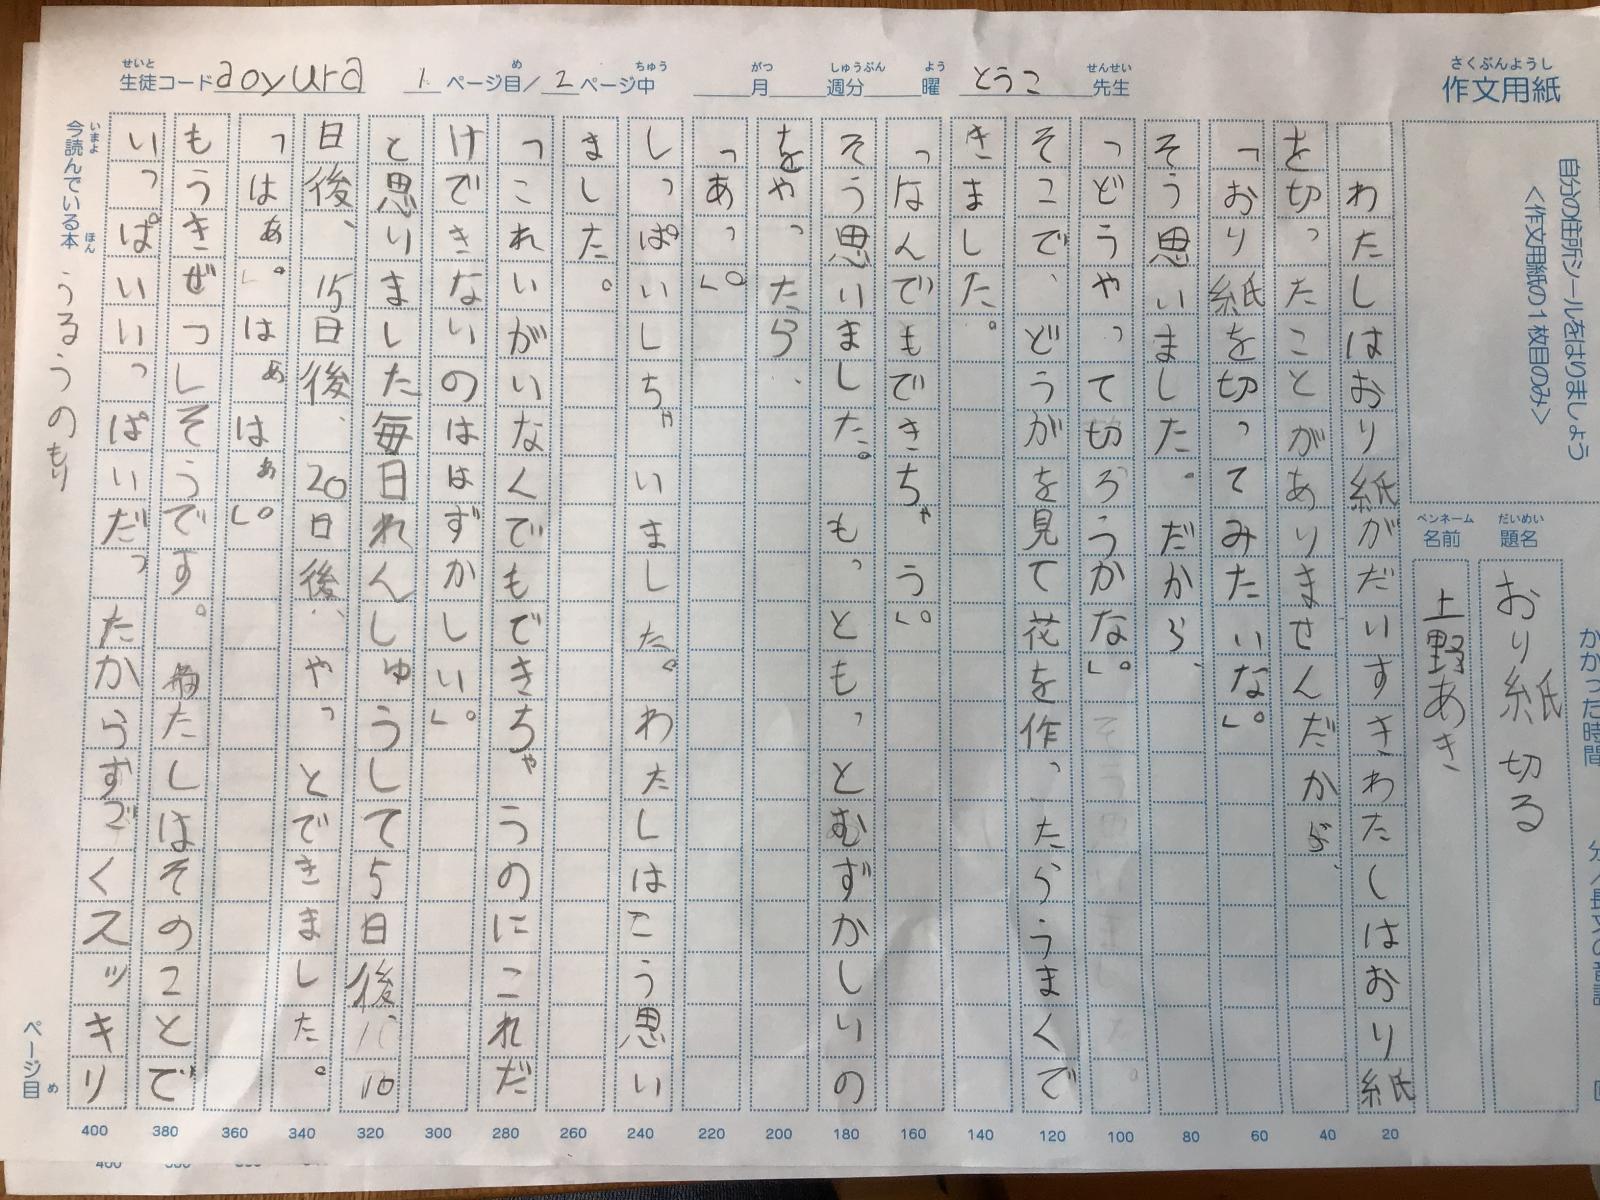 生徒コード aoyura 1 ページ目/2 ページ中 月 週分 曜 とうこ 先生
作文用紙
自分の住所シールをはりましょう
<作文用紙の1枚目のみ>
題名 おり紙切る
名前 上野あき
わたしはおり紙がだいすきわたしはおり紙
を切ったことがありませんだから、
「おり紙を切ってみたいな」。
そう思いました。だから、
「どうやって切ろうかな」。
そこで、どうがを見て花を作ったらうまくで
きました。
「なんでもできちゃう」。
そう思いました。もっともっとむずかしいの
をやったら、
「あっ」。
しっぱいしちゃいました。わたしはこう思い
ました。
「これいがいなくでもできちゃうのにこれだ
けできないのははずかしい」。
と思いました毎日れんしゅうして5日後、10
日後、15日後、20日後、やっとできました。
「はぁ」。はぁはぁ」。
もうきぜつしそうです。わたしはそのことで
いっぱいいっぱいだったからすごくスッキリ
今読んでいる本 うるうのもり
ページ目
400 380 360 340 320 300 280 260 240 220 200 180 160 140 120 100 80 60 40 20